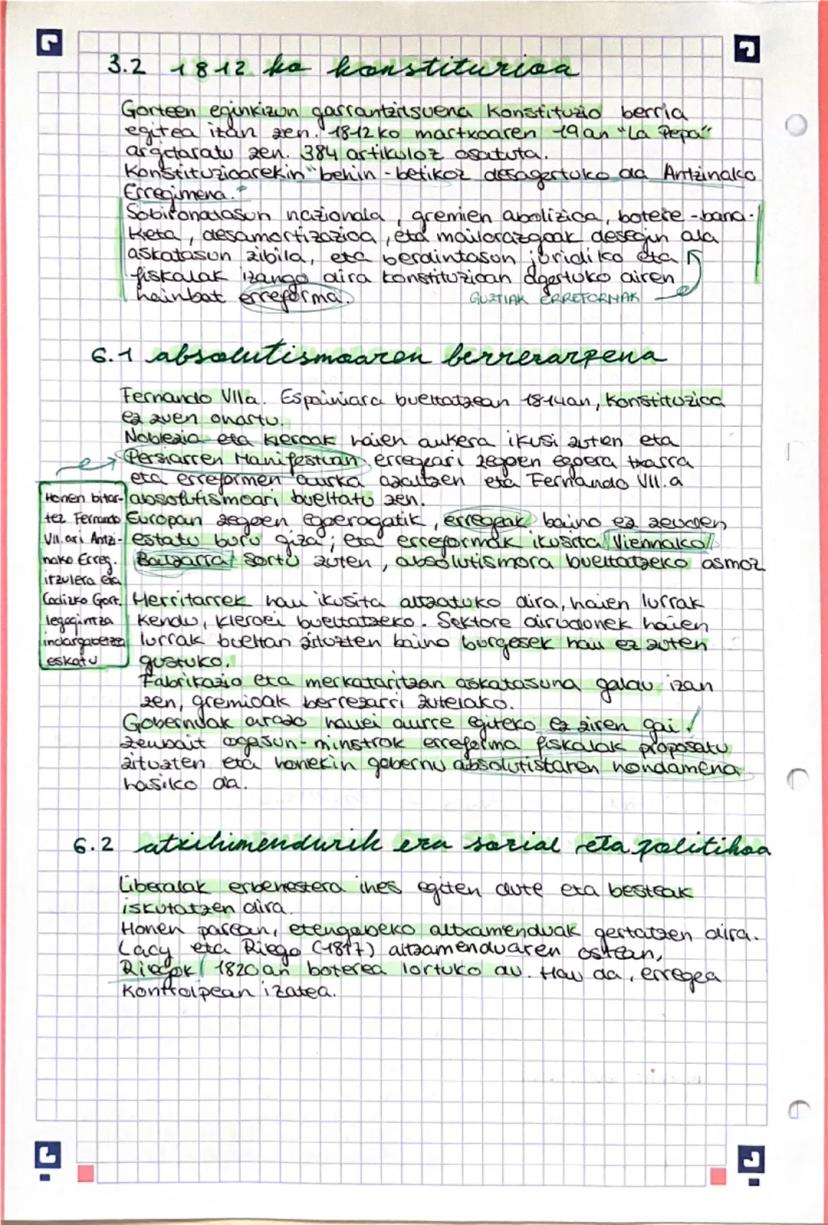 3.2 1812 ko konstituzioa
Gorteen eginkizun garrantzitsuena Konstituzio berria
egitea izan zen. 1812ko martxoaren 19an "La Pepa"
argitaratu zen. 384 artikuloz osatuta.
Konstituzioarekin behin-betikoz desagertuko da Antzinako
Erregimena.
Sobiranatasun nazionala, gremien abolizioa, botere-bana-
keta, desamortizazioa, eta maiorazgoak desegin ala
askatasun zibila, eta berdintasun juridiko eta
fiskalak izango dira konstituzioan agertuko diren
hainbat erreforma.
GUZTIAK ERREFORMAK
6.1 absolutismoaren berrezarpena
Fernando VIIa. Espainiara bueltatzean 1814an, Konstituzioa
ez zuen onartu.
Noblezia eta kleroak haien aukera ikusi zuten eta
Persiarren Manifestuan erregeari zegoen egoera txarra
eta erreformen aurka azaltzen eta Fernando VII.a
absolutismoari bueltatu zen.
Honen bitar-
tez Fernando
VII.ari Antzi-
nako Erreg.
itzulera eta
Cadizko Gort.
legegintza
indargabetzea
eskatu
Europan zegoen egoeragatik, erregeak baino ez zeuden
estatu buru giza; eta erreformak ikusita Vienako
Batzarra sortu zuten, absolutismora bueltatzeko asmoz
Herritarrek hau ikusita altzatuko dira, haien lurrak
kendu, kleroei bueltatzeko. Sektore dirudonek haien
lurrak bueltan zituzten baino burgesek hau ez zuten
gustuko.
Fabrikazio eta merkataritzan askatasuna galdu izan
zen, gremioak berrezarri zutelako.
Gobernuak arazo hauei aurre egiteko ez ziren gai!
zenbait ogasun-ministrok erreforma fiskalak proposatu
zituzten eta honekin gobernu absolutistaren hondamena
hasiko da.
6.2 atxikimendurik eza sozial eta politikoa
Liberalak erbestera ihes egiten dute eta besteak
iskutatzen dira.
Honen parean, etengabeko altxamenduak gertatzen dira.
Lacy eta Riego (1817) altzamenduaren ostean,
Riegok 1820an boterea lortuko du. Hau da, erregea
Kontrolpean izatea.